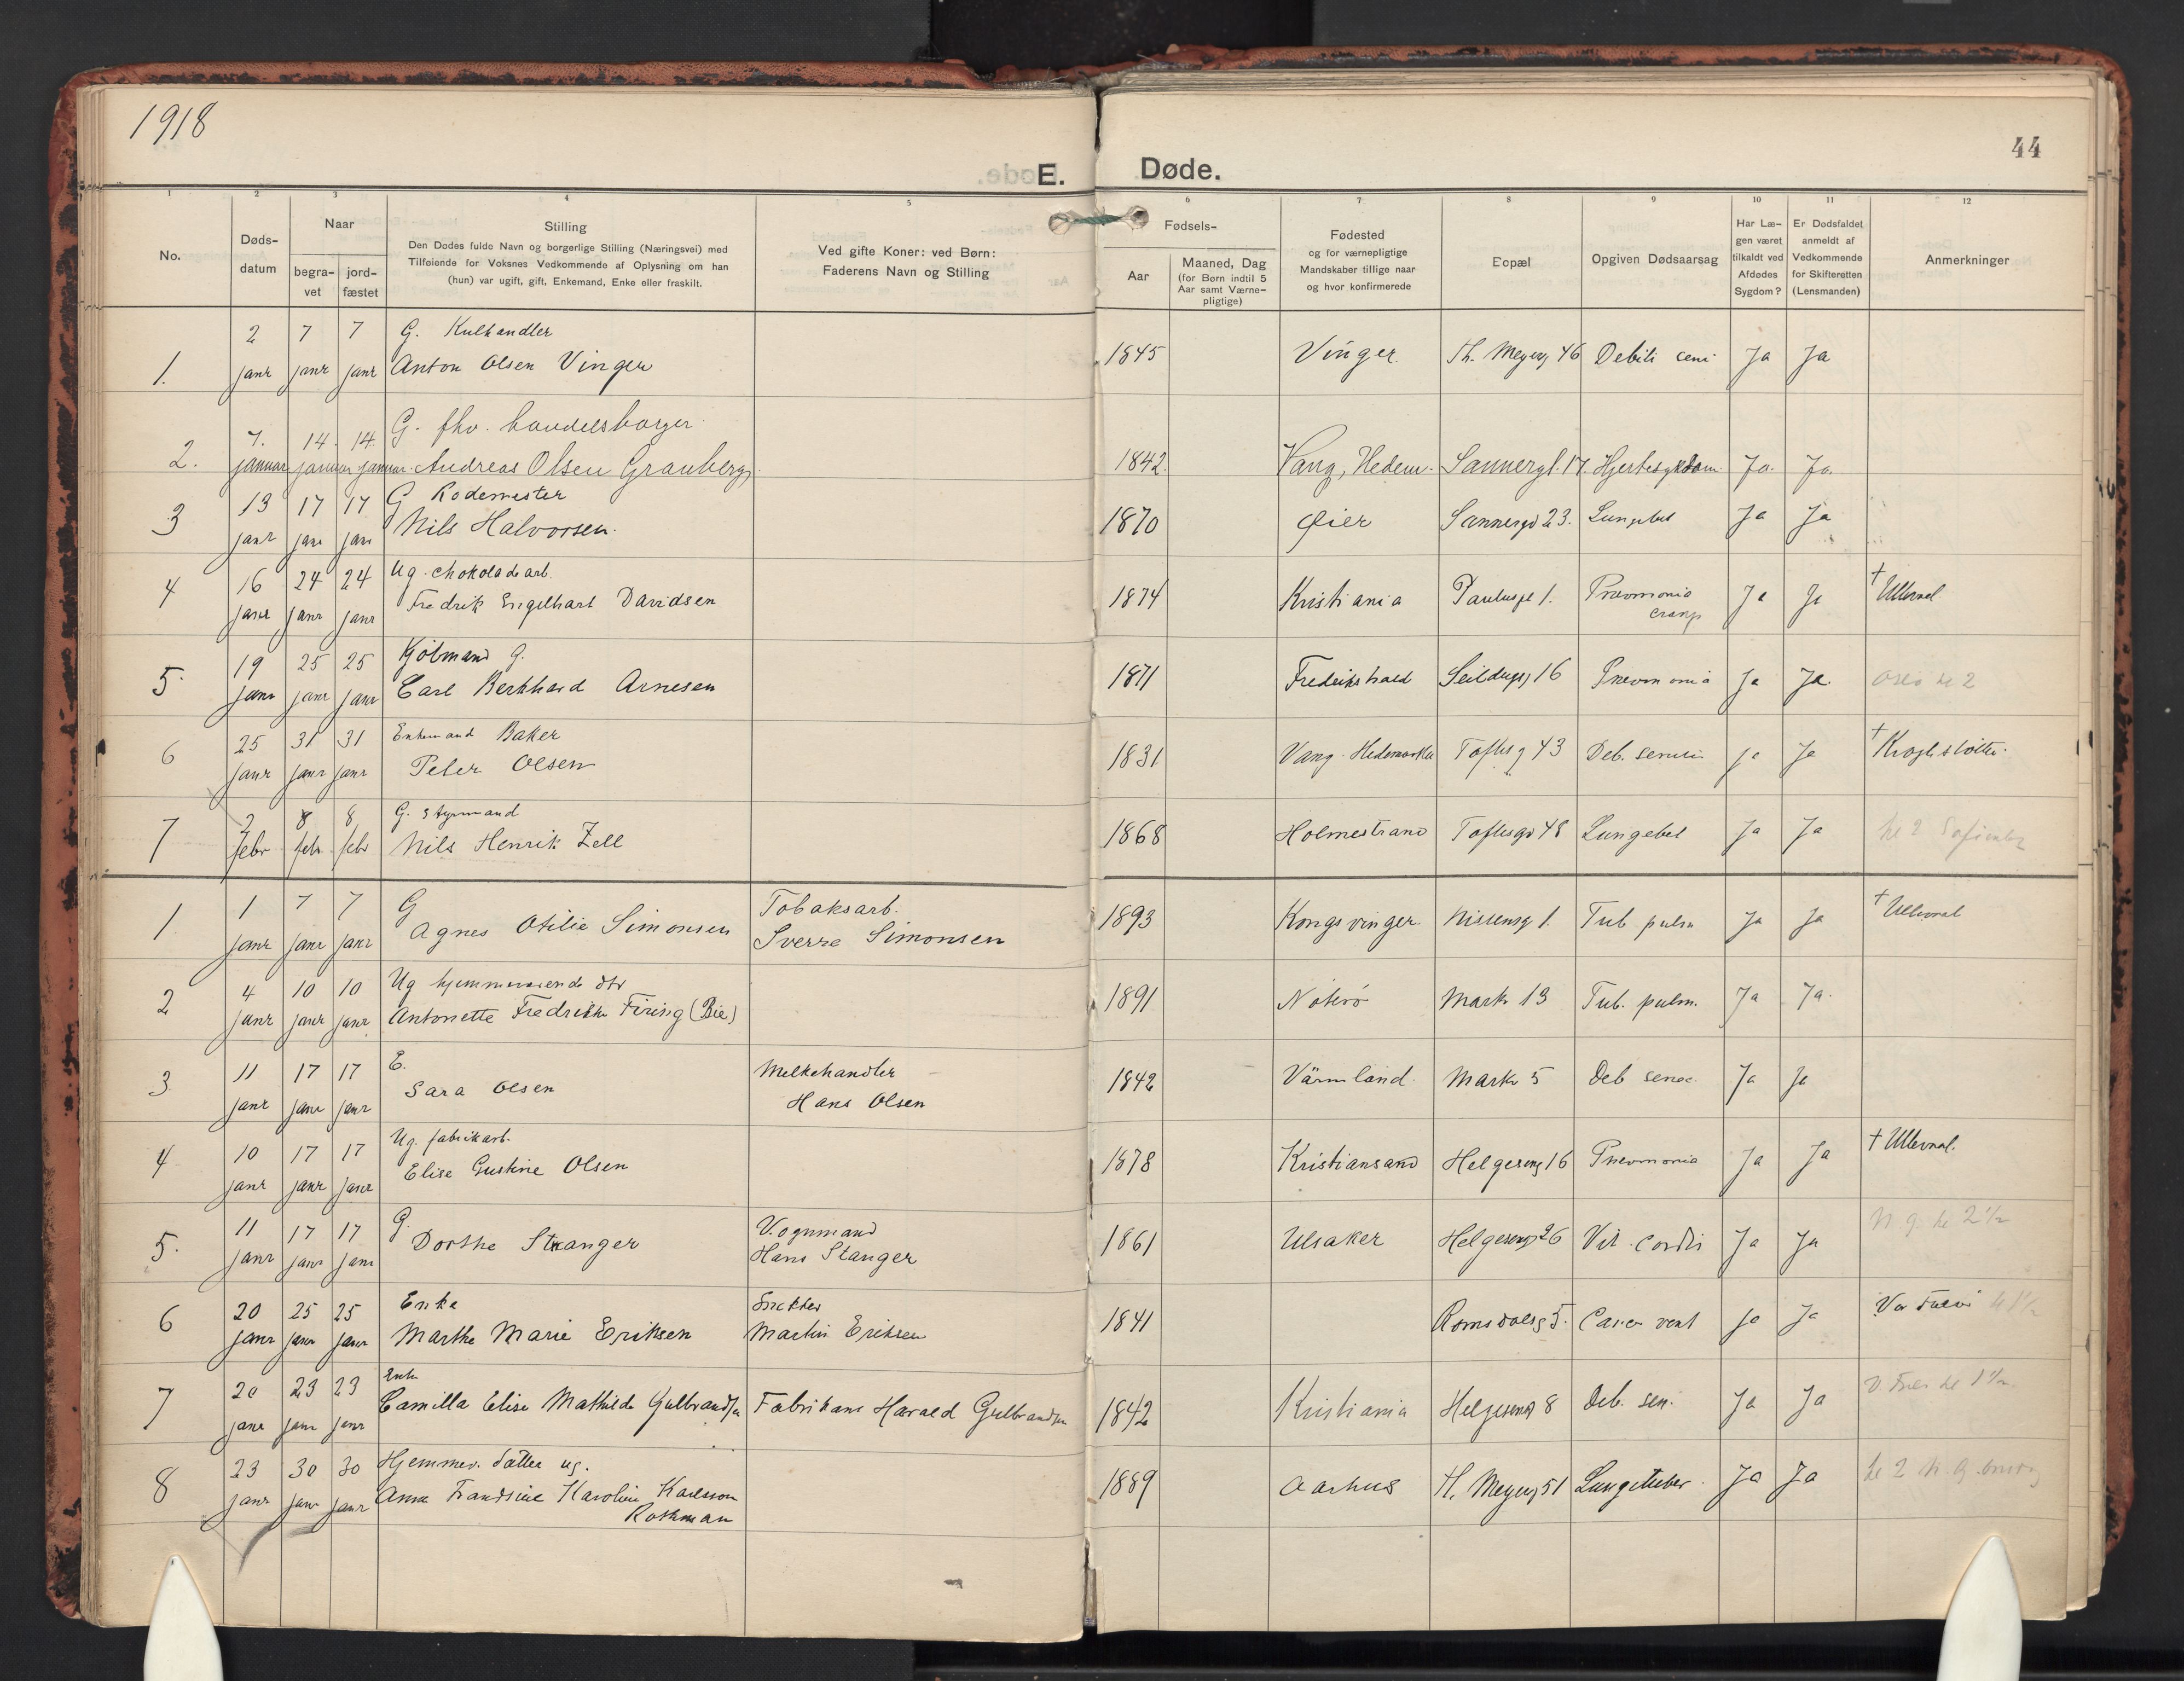 1918
44
E. Døde.
1 2 3 4 5 6 7 8 9 10 11 12
No.
Døds-
datum
Naar
begra-
vet
jord-
fæstet
Stilling
Den Dødes fulde Navn og borgerlige Stilling (Næringsvei) med
Tilføiende for Voksnes Vedkommende af Oplysning om han
(hun) var ugift, gift, Enkemand, Enke eller fraskilt.
Ved gifte Koner: ved Børn:
Faderens Navn og Stilling
Fødsels-
Aar
Maaned, Dag
(for Børn indtil 5
Aar samt Værne-
pligtige)
Fødested
og for værnepligtige
Mandskaber tillige naar
og hvor konfirmerede
Bopæl
Opgiven Dødsaarsag
Har Læ-
gen været
tilkaldt ved
Afdødes
Sygdom?
Er Dødsfaldet
anmeldt af
Vedkommende
for Skifteretten
(Lensmanden)
Anmerkninger
2 7 7 G. Kulhandler
1. janr janr janr Anton Olsen Vinger 1845 Vinger Th. Meyersg 46 Debili seni Ja Ja
7. 14. 14. G. fhv. handelsborger
2. januar januar januar Andreas Olsen Granberg. 1842 Vang, Hedem. Sannergt. 17. Hjertesykdom Ja. Ja.
13 17 17 G Rodemester
3 janr janr janr Nils Halvorsen. 1870 Øier Sannergd 23. Lungebet Ja Ja
16 24 24 Ug. chokoladearb.
4 janr janr janr Fredrik Engelhart Davidsen 1874 Kristiania Paulusgt 1. Pneumonia croup Ja Ja † Ullevaal
19 25 25 Kjøbmand g.
5. janr janr janr Carl Berhhard Arnesen 1871 Fredrikshald Seildugsg 16 Pneumonia Ja Ja. Oslo kl 2
25 31 31 Enkemand Baker
6 janr janr janr Peter Olsen 1831 Vang Hedemarken Toftesg 43 Deb. senilis ja Ja † Kroghstøtte.
2 8 8 G. Styrmand
7 febr febr febr Nils Henrik Zell 1868 Holmestrand Toftesgd 48 Lungebet Ja Ja kl 2 Sofienberg
1 7 7 G Tobaksarb.
1 janr janr janr Agnes Otilie Simonsen Sverre Simonsen 1893 Kongsvinger. Nissensg 1. Tub pulm Ja Ja † Ullevaal
4 10 10 Ug hjemmeværende dtr
2 janr janr janr Antonette Fredrikke Firing (Bie) 1891 Nøterø Markv 13 Tub. pulm. Ja Ja.
11 17 17 E. Melkehandler
3 janr janr janr Sara Olsen Hans Olsen 1842 Värmland Markv 5 Deb senec. Ja Ja
10 17 17 Ug. fabrikarb.
4 janr janr janr Elise Gustine Olsen 1878 Kristiansand Helgesensg 16 Pneumonia Ja Ja † Ullevaal.
11 17 17 G. Vognmand
5. janr janr janr Dorthe Stanger Hans Stanger 1861 Ulsaker Helgesensg 26 Vit. cordis Ja Ja N. g. kl 2 1/2
20 25 25 Enke Snekker
6 janr janr janr Marthe Marie Eriksen Martin Eriksen 1841 Romsdalsg 5. Cancer vent ja Ja
20 23 23 Enke
7 janr janr janr Camilla Elise Mathilde Gulbrandsen Fabrikant Harald Gulbrandsen 1842 Kristiania Helgesensg 8 Deb. sen. Ja Ja
23 30 30 Hjemmev. datter ug.
8 janr janr janr Anna Frandsine Karoline Karlsson
Rothman 1889 Aarhus H. Meyersg 51 Lungetuber. Ja Ja